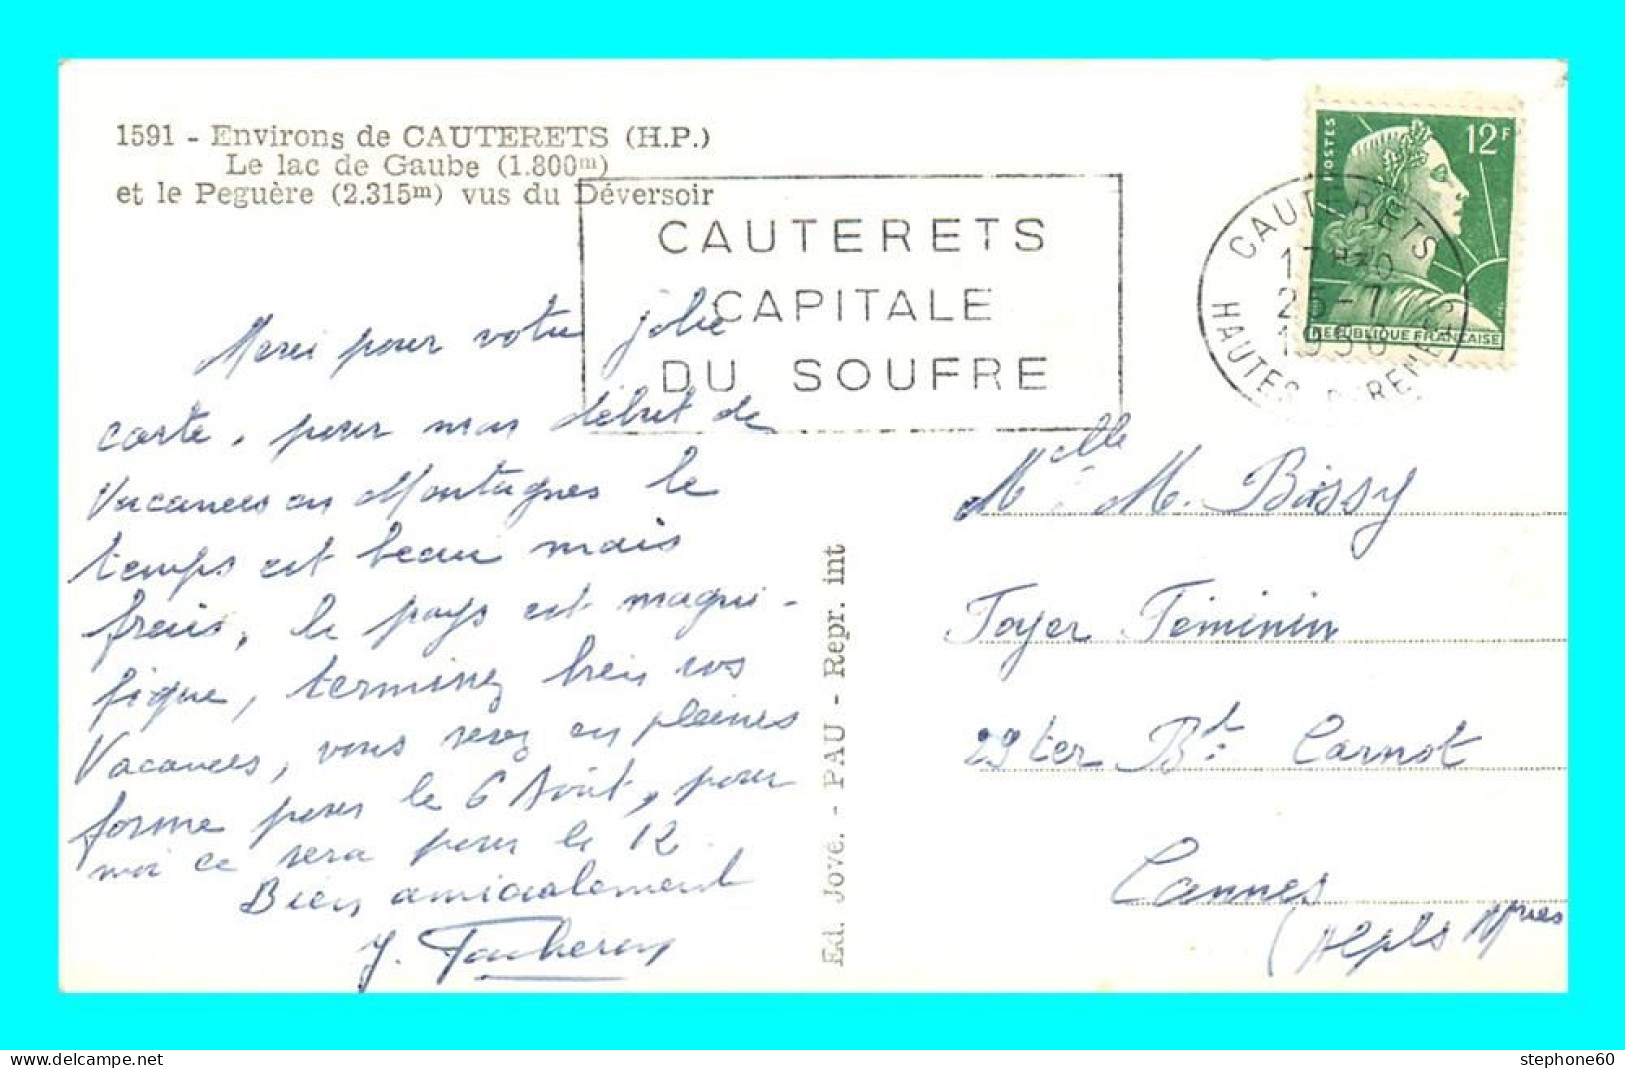 1591 - Environs de CAUTERETS (H.P.)
Le lac de Gaube (1.800m)
et le Peguère (2.315m) vus du Déversoir
CAUTERETS
CAPITALE
DU SOUFRE
POSTES
12F
REPUBLIQUE FRANÇAISE
CAUTERETS
17H30
25-7
HAUTES PYRENEES
Merci pour votre jolie
carte, pour mon début de
Vacances en Montagnes le
temps est beau mais
frais, le pays est magni-
fique, terminez bien vos
Vacances, vous serez en pleines
forme pour le 6 Août, pour
moi ce sera pour le 12.
Bien amicalement
J.
Ed. Jove. - PAU - Repr. int
Melle M. Bissy
Foyer Féminin
29 ter Bt: Carnot
Cannes
(Alpes
stephone60